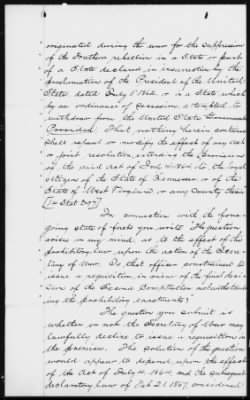 originated during the war for the suppression
of the Southern rebellion in a State or part
of a State declared in insurrection by the
proclamation of the President of the United
States dated July 1" 1862, or in a State which
by an ordinance of Secession attempted to
withdraw from the United States Government
Provided, That nothing herein contained
shall repeal or modify the effect of any act
or joint resolution extending the provisions
of the said act of July 4, 1864 to the loyal
citizens of the State of Tennessee, or of the
State of West Virginia, or any County therein
[14 Stat 397]
In connection with the fore-
going state of facts you write "the question
arises in my mind, as to the effect of the
prohibitory law upon the action of the Secre-
tary of War. Is that officer constrained to
issue a requisition, in view of the final deci-
sion of the Second Comptroller notwithstand-
ing the prohibitory enactments?"
The question you submit is
whether or not the Secretary of War may
lawfully decline to issue a requisition in
the premises. The solution of the question
would appear to depend upon the effect
of the Act of July 4, 1864, and the subsequent
declaratory law of Feb 21, 1867, considered